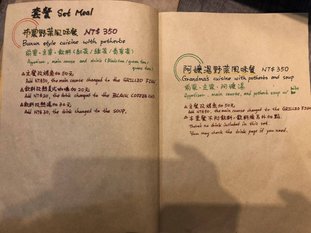 套餐 Set Meal
布農野菜風味餐 NT$350
Bunun style cuisine with potherbs
前菜、主食、飲料
Appetizer, main course and drink
主餐改烤魚加50元
Add NT$50, the main course changed to the GRILLED FISH
Add NT$20, the drink changed to the BLACK COFFEE
Add NT$30, the drink changed to the SOUP.
阿嬤湯野菜風味餐 NT$350
Grandma's cuisine with potherbs and soup
前菜、主食、阿嬤湯
Appetizer, main course, and potherb soup
主餐改烤魚加50元
Add NT$50, the main course changed to the GRILLED FISH
There's no drink included in this set.
You may check the drink page if you need.